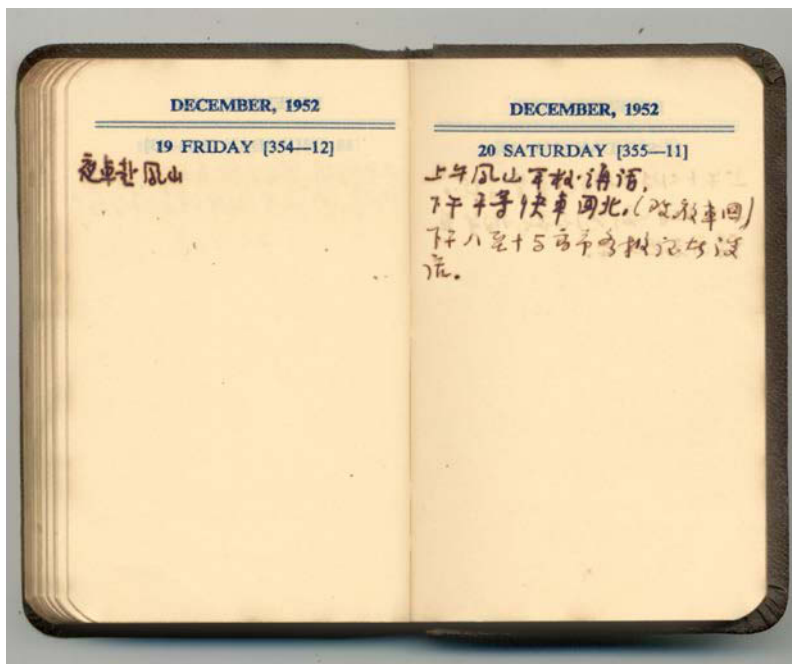 DECEMBER, 1952
19 FRIDAY [354—12]
夜車赴鳳山
DECEMBER, 1952
20 SATURDAY [355—11]
上午鳳山軍校講話.
下午平等快車回北.(改夜車回)
下午八至十
話.